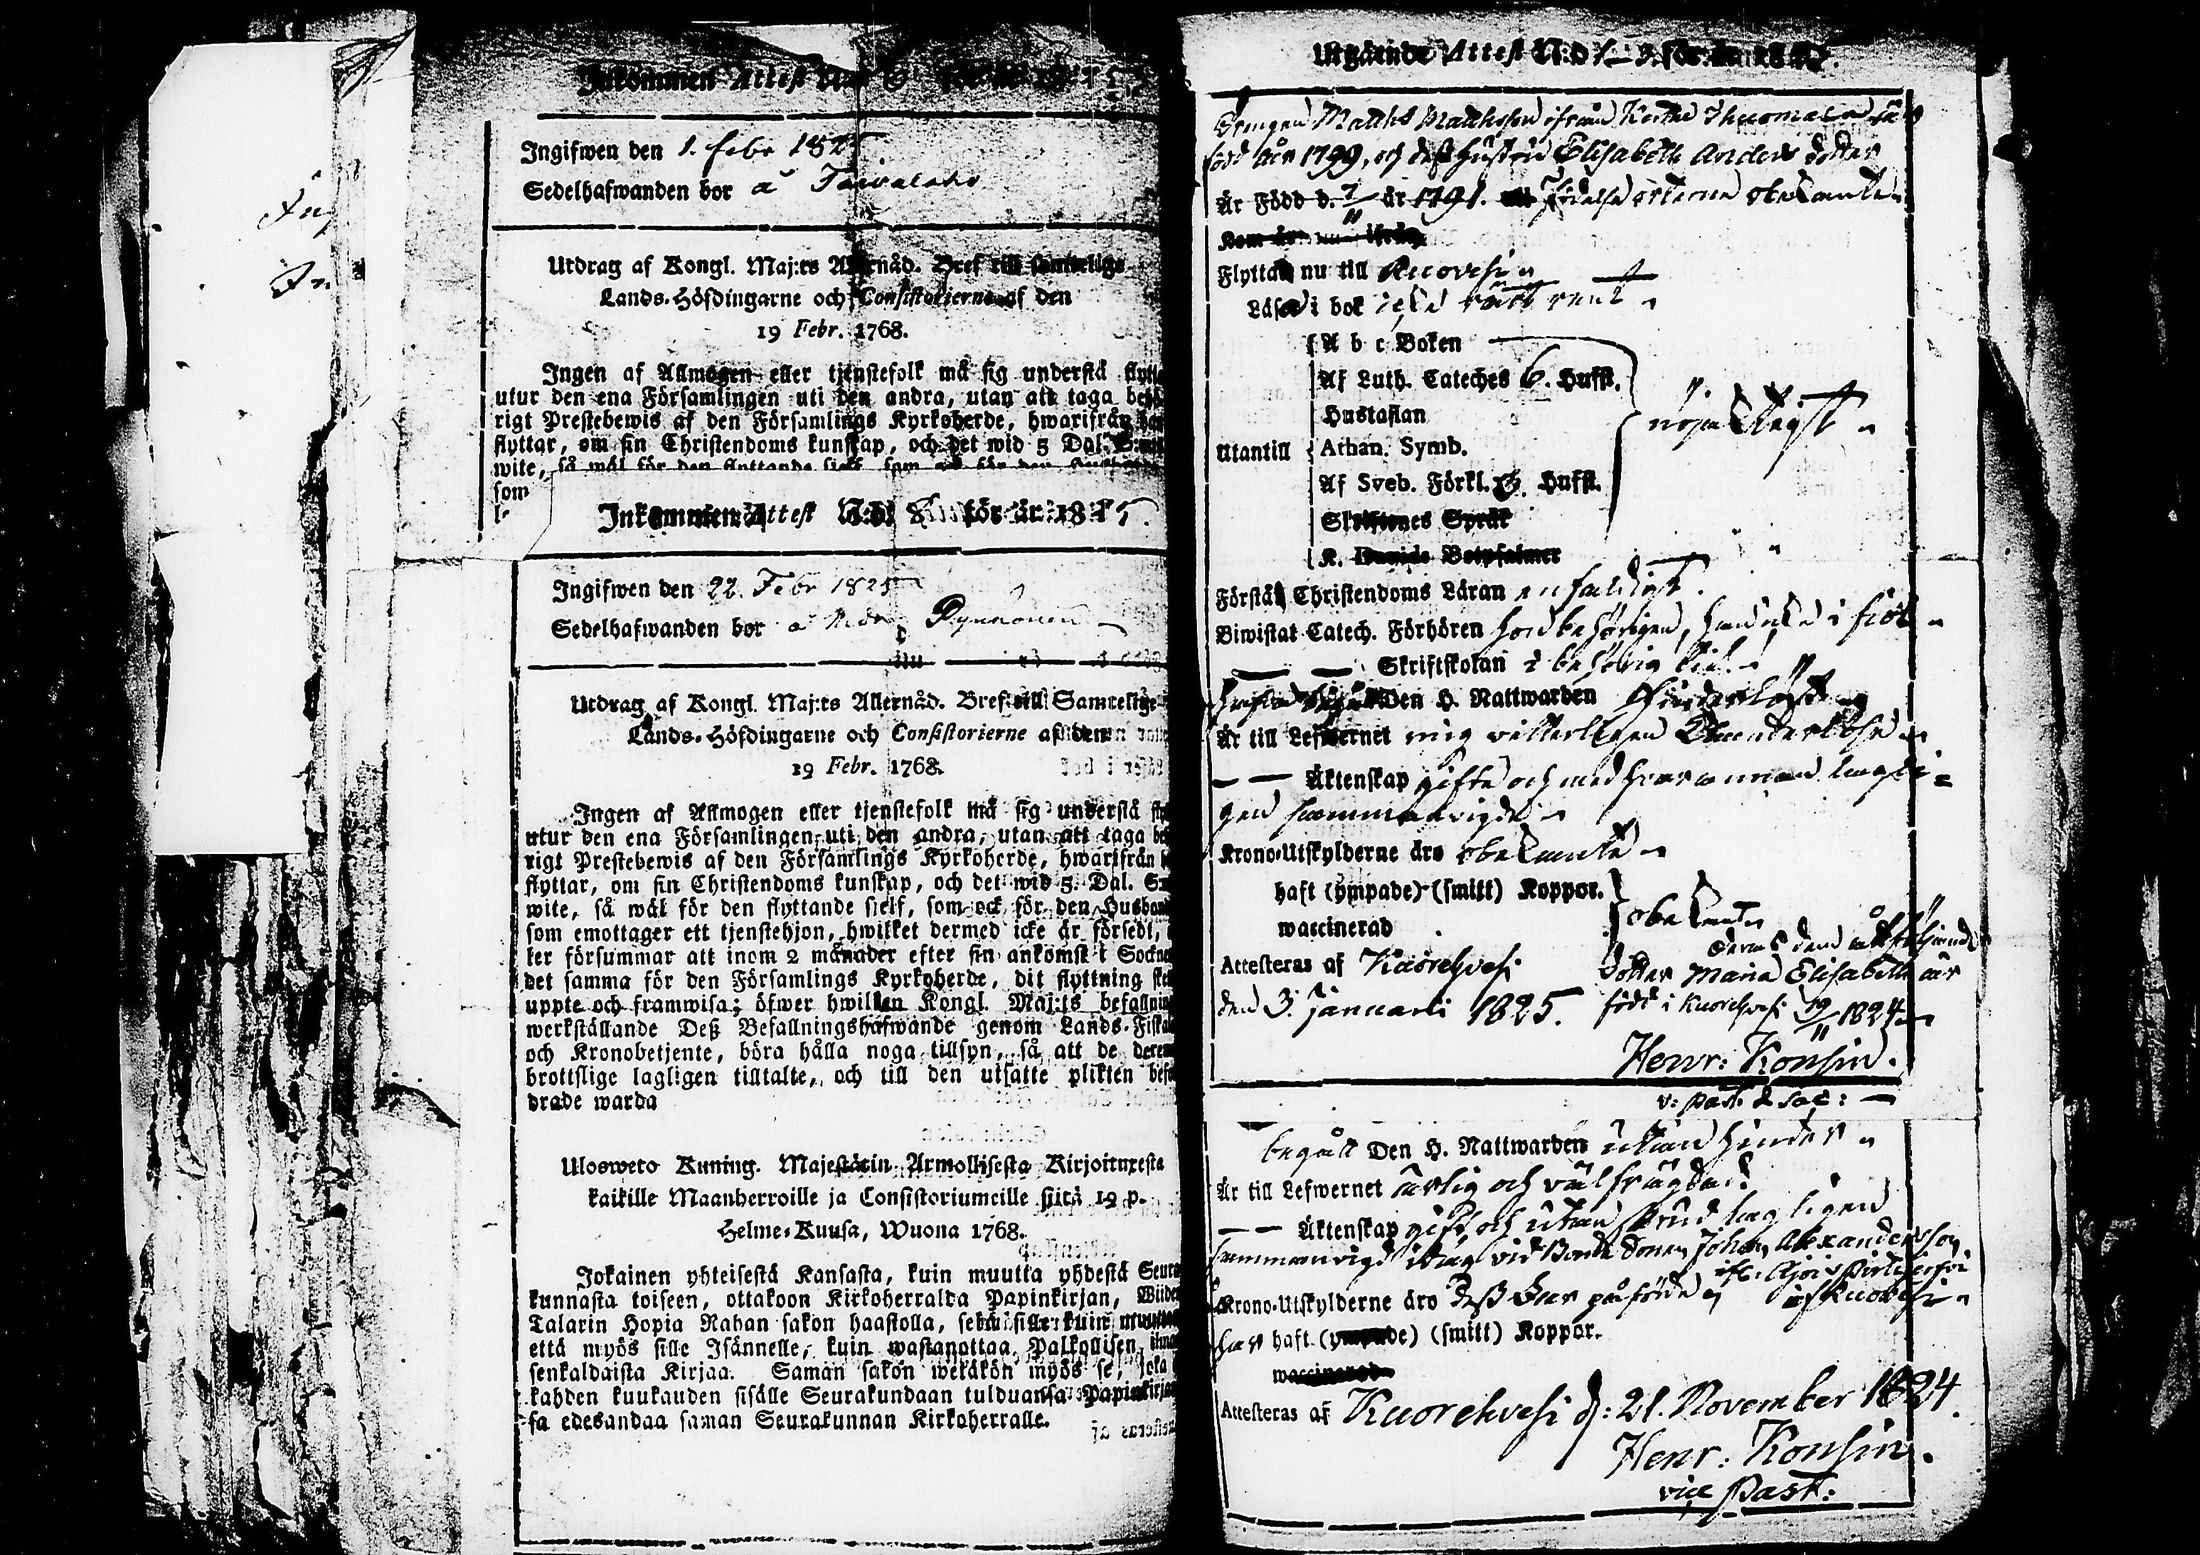 Inkommen Attest
Ingifwen den 1. Febr 1825
Sedelhafwanden bor å Taivalaho
Utdrag af Kongl. Maj:ts Allernåd. Bref till samtelige
Lands-Höfdingarne och Consistorierne af den
19 Febr. 1768.
Ingen af Allmogen eller tjenstefolk må sig understå flytta
utur den ena Församlingen uti den andra, utan att taga behö
rigt Prestebewis af den Församlings Kyrkoherde, hwarifrån han
flyttar, om sin Christendoms kunskap, och det wid 5 Dal. S:mt
wite, så wäl för den flyttande sielf, som ock för den
som
Inkommen Attest N:o 8 för år 1825.
Ingifwen den 22. Febr 1825
Sedelhafwanden bor å Pynnönen
Utdrag af Kongl. Maj:ts Allernåd. Bref till Samtelige
Lands-Höfdingarne och Consistorierne af den
19 Febr. 1768.
Ingen af Allmogen eller tjenstefolk må sig understå fly
utur den ena Församlingen uti den andra, utan att taga beh
rigt Prestebewis af den Församlings Kyrkoherde, hwarifrån h
flyttar, om sin Christendoms kunskap, och det wid 5. Dal. S:
wite, så wäl för den flyttande sielf, som ock för den Husbond
som emottager ett tjenstehjon, hwilket dermed icke är försedt,
ker försummar att inom 2 månader efter sin ankomst i Sockne
det samma för den Församlings Kyrkoherde, dit flyttning ske
uppte och framwisa; öfwer hwilken Kongl. Maj:ts befallning
werkställande Deß Befallningshafwande genom Lands-Fiska
och Kronobetjente, böra hålla noga tillsyn, så att de deremo
brottslige lagligen tilltalte, och till den utsatte plikten befo
drade warda
Ulosweto Kuning. Majestätin Armollisesta Kirjoituxesta
kaikille Maanherroille ja Consistoriumeille siitä 19 p.
Helme-Kuusa, Wuona 1768.
Jokainen yhteisestä Kansasta, kuin muutta yhdestä Seura
kunnasta toiseen, ottakoon Kirkoherralda Papinkirjan, Wiiden
Talarin Hopia Rahan sakon haastolla, sekä sille kuin muutta
että myös sille Isännelle, kuin wastanottaa Palkollisen, ilma
senkaldaista Kirjaa. Saman sakon wetäkön myös se, joka
kahden kuukauden sisälle Seurakundaan tulduansa Papinkirja
sa edesandaa saman Seurakunnan Kirkoherralle.
Utgående Attest N:o
Drängen Matths Matthsson ifrån Thuomala är
född år 1799, och deß hustru Elisabeth Anders dotter
Är Född d. 7/11 år 1791. födelse orterne obekante
Kom år ifrån
Flyttar nu till Kuorvesi
Läsa i bok rätt rent
Utantill
A b c Boken
Af Luth. Cateches 6. Hufst.
Hustaflan
Athan. Symb.
Af Sveb. Förkl. 6. Hufst.
Skriftenes Språk
K. Davids Botpsalmer
nöjacktigt
Förstå Christendoms Läran enfaldigt.
Biwistat Catech. Förhören
Skriftskolan i behörig tid.
Den H. Nattwarden hinderlöst
Är till Lefwernet mig vetterligen
Äktenskap gifte och med hvarannan lagli-
gen sammanvigde
Krono-Utskylderne äro obekante
haft (ympade) (smitt) Koppor.
waccinerad
obekant
Attesteras af Kuorehvesi
den 3. Januarii 1825.
Deras
dotter Maria Elisabeth är
född i Kuorehvesi 19/11 1824
Henr: Konsin.
v: Past. & Sac:
begått Den H. Nattwarden utan hinder
Är till Lefwernet ärlig och välfrägdad
Äktenskap gift och utan lagligen
sammanvigd vid Bonde Sonen Johan Alexandersson
Krono-Utskylderne äro deß Far påförde
har haft (ympade) (smitt) Koppor.
waccinerad
Attesteras af Kuorehvesi d: 21. November 1824.
Henr: Konsin.
vice Past: